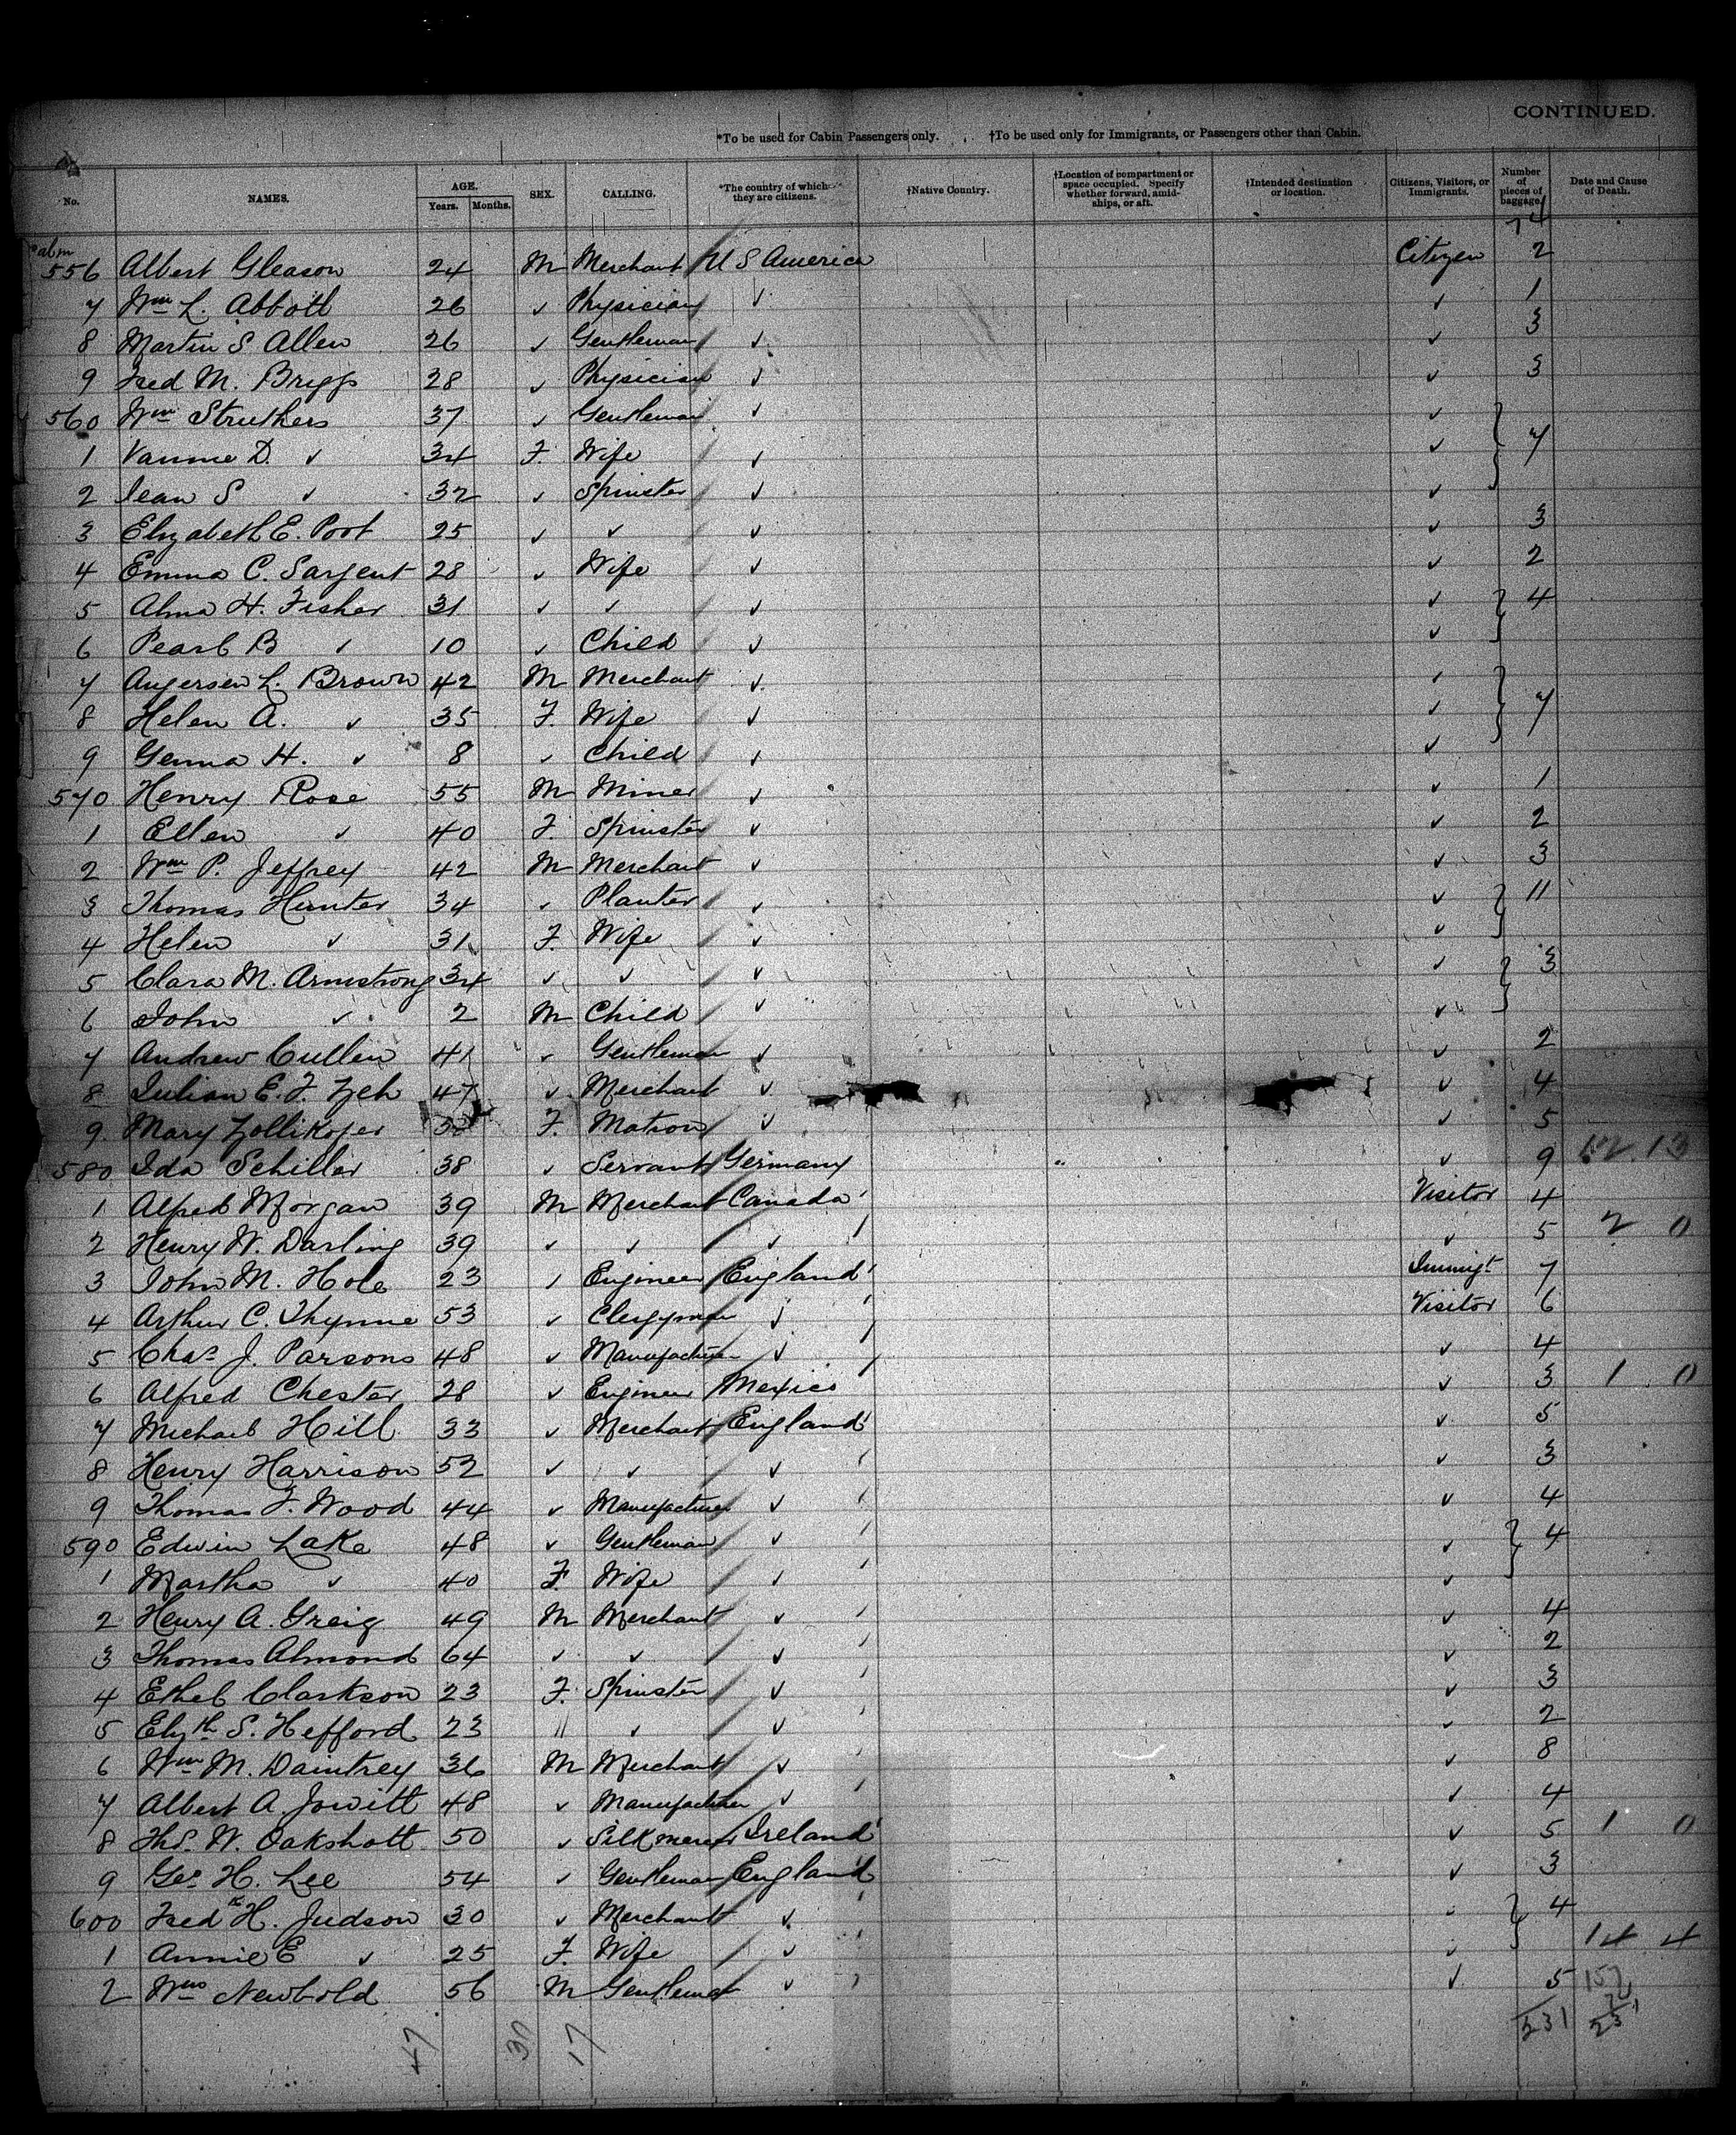 CONTINUED.
*To be used for Cabin Passengers only. †To be used only for Immigrants, or Passengers other than Cabin.
No. NAMES. AGE. Years. Months. SEX. CALLING. *The country of which they are citizens. †Native Country. †Location of compartment or space occupied. Specify whether forward, amidships, or aft. †Intended destination or location. Citizens, Visitors, or Immigrants. Number of pieces of baggage. Date and Cause of Death.
74
Cabin
556 Albert Gleason 24 M Merchant U S America Citizen 2
7 Wm L. Abbott 26 ✓ Physician ✓ ✓ 1
8 Martin S Allen 26 ✓ Gentleman ✓ ✓ 3
9 Fred M. Briggs 28 ✓ Physician ✓ ✓ 3
560 Wm Struthers 37 ✓ Gentleman ✓ ✓
1 Vannie D. ✓ 34 F. Wife ✓ ✓ } 7
2 Jean S ✓ 32 ✓ Spinster ✓ ✓
3 Elizabeth E. Poot 25 ✓ ✓ ✓ ✓ 3
4 Emma C. Sargent 28 ✓ Wife ✓ ✓ 2
5 Alma H. Fisher 31 ✓ ✓ ✓ ✓ } 4
6 Pearl B ✓ 10 ✓ Child ✓ ✓
7 L. Brown 42 M Merchant ✓ ✓
8 Helen A. ✓ 35 F. Wife ✓ ✓ } 7
9 Genna H. ✓ 8 ✓ Child ✓ ✓
570 Henry Rose 55 M Miner ✓ ✓ 1
1 Ellen ✓ 40 F. Spinster ✓ ✓ 2
2 Wm P. Jeffrey 42 M Merchant ✓ ✓ 3
3 Thomas Hunter 34 ✓ Planter ✓ ✓ } 11
4 Helen ✓ 31 F. Wife ✓ ✓
5 Clara M. Armstrong 34 ✓ ✓ ✓ ✓ } 3
6 John ✓ 2 M Child ✓ ✓
7 Andrew Cullen 41 ✓ Gentleman ✓ ✓ 2
8 Julian E. F. Zeh 47 ✓ Merchant ✓ ✓ 4
9 Mary Zollikofer F. Matron ✓ ✓ 5
580 Ida Schiller 38 ✓ Servant Germany ✓ 9 12 13
1 Alfred Morgan 39 M Merchant Canada Visitor 4
2 Henry W. Darling 39 ✓ ✓ ✓ ✓ 5 2 0
3 John M. Hole 23 ✓ Engineer England Immigt 7
4 Arthur C. Thynne 53 ✓ Clergyman ✓ Visitor 6
5 Chas J. Parsons 48 ✓ Manufacturer ✓ ✓ 4
6 Alfred Chester 28 ✓ Engineer Mexico ✓ 3 1 0
7 Michael Hill 33 ✓ Merchant England ✓ 5
8 Henry Harrison 52 ✓ ✓ ✓ ✓ 3
9 Thomas F. Wood 44 ✓ Manufacturer ✓ ✓ 4
590 Edwin Lake 48 ✓ Gentleman ✓ ✓ } 4
1 Martha ✓ 40 F. Wife ✓ ✓
2 Henry A. Greig 49 M Merchant ✓ ✓ 4
3 Thomas Almond 64 ✓ ✓ ✓ ✓ 2
4 Ethel Clarkson 23 F. Spinster ✓ ✓ 3
5 Elizth S. Hefford 23 " ✓ ✓ ✓ 2
6 Wm M. Daintrey 36 M Merchant ✓ ✓ 8
7 Albert A. Jowitt 48 ✓ Manufacturer ✓ ✓ 4
8 Ths. W. Oakshott 50 ✓ Silk mercer Ireland ✓ 5 1 0
9 Geo H. Lee 54 ✓ Gentleman England ✓ 3
600 Fredk H. Judson 30 ✓ Merchant ✓ ✓ } 4
1 Annie E ✓ 25 F. Wife ✓ ✓ 14 4
2 Wm Newbold 56 M Gentleman ✓ ✓ 5 157
231
47 30 17